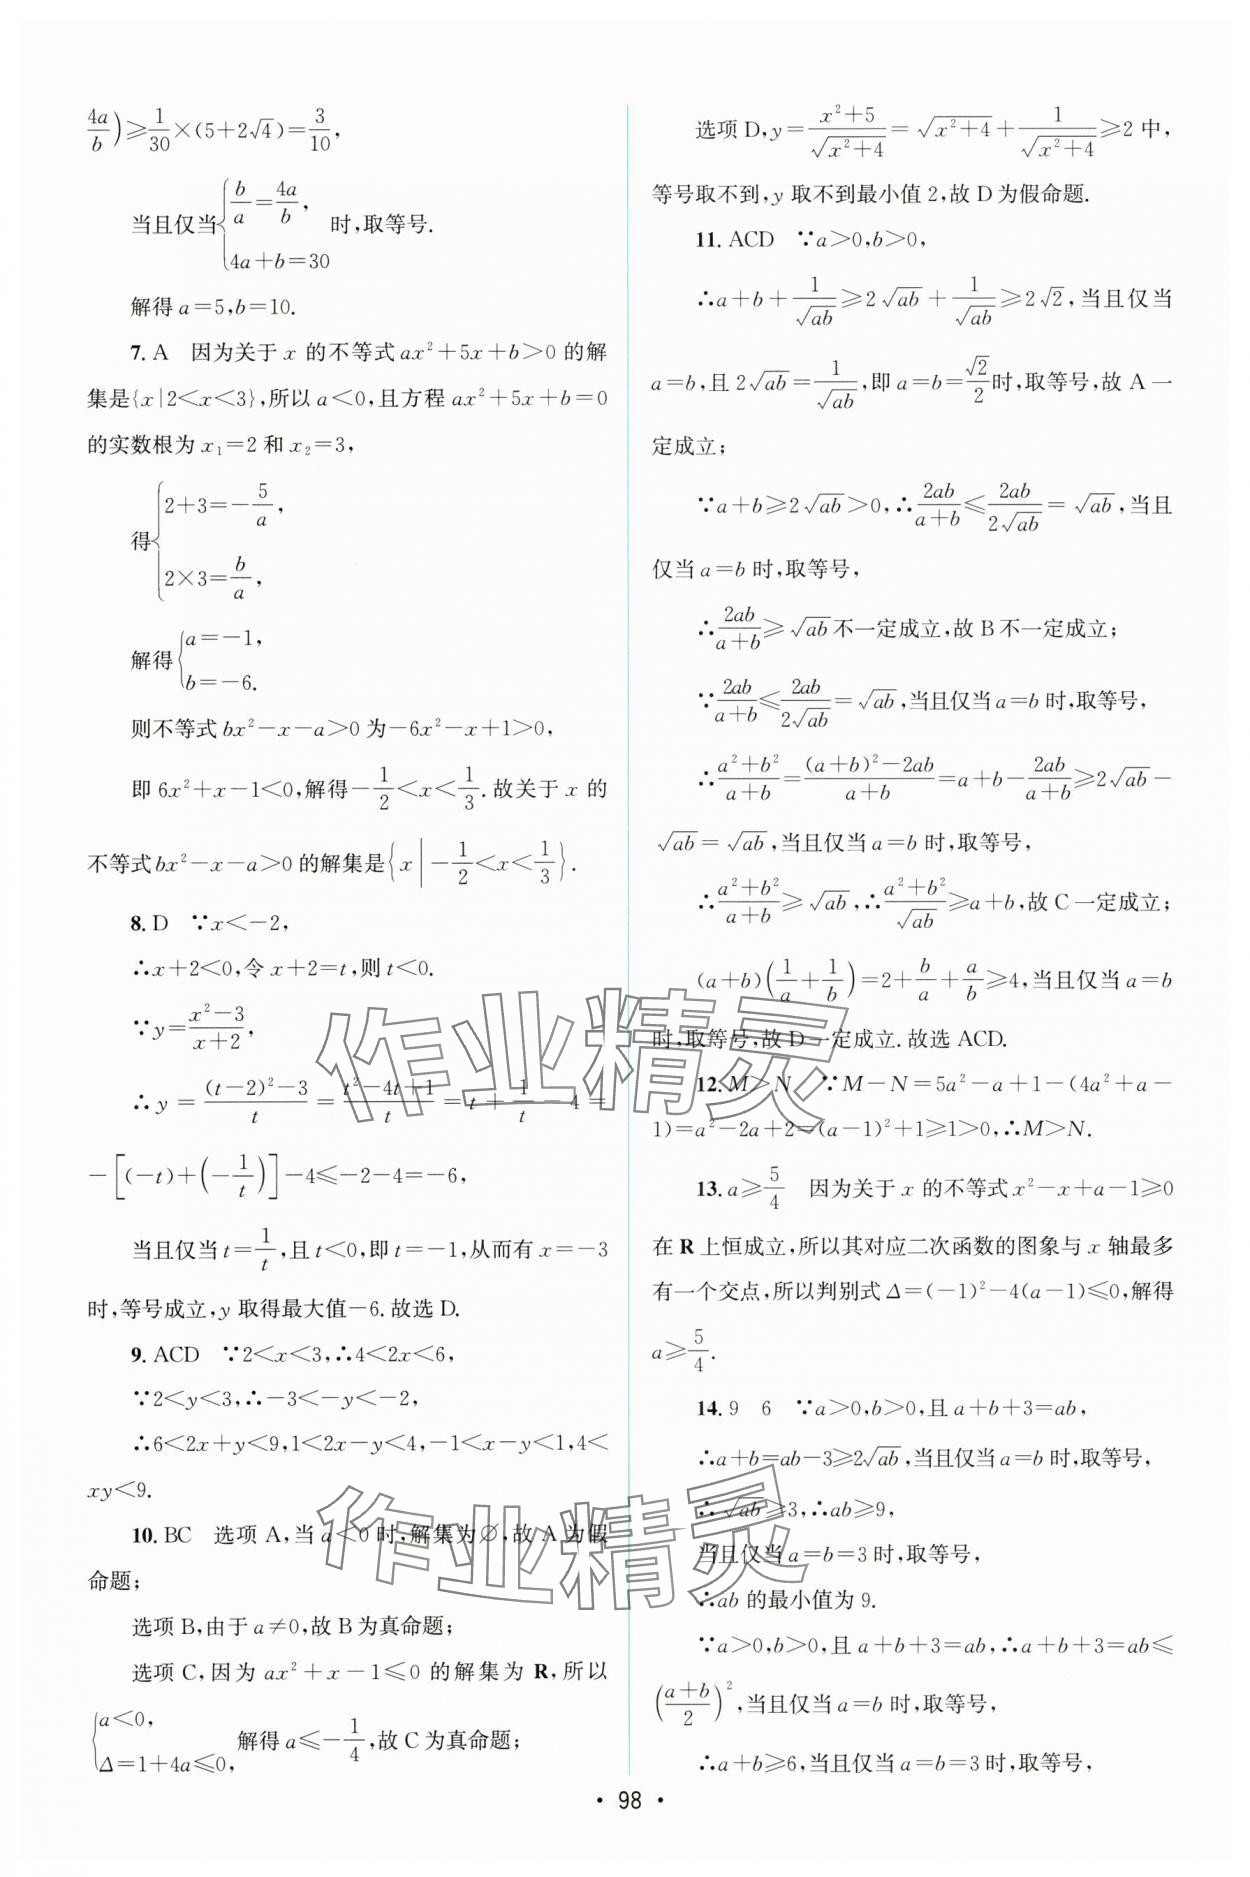 4a/b)≥1/30×(5+2√4)=3/10,
当且仅当{b/a=4a/b, 4a+b=30 时,取等号.
解得 a=5,b=10.
7. A 因为关于 x 的不等式 ax²+5x+b>0 的解
集是{x|2<x<3},所以 a<0,且方程 ax²+5x+b=0
的实数根为 x₁=2 和 x₂=3,
得{2+3=-5/a, 2×3=b/a,
解得{a=-1, b=-6.
则不等式 bx²-x-a>0 为-6x²-x+1>0,
即 6x²+x-1<0,解得-1/2<x<1/3.故关于 x 的
不等式bx²-x-a>0 的解集是{x|-1/2<x<1/3}.
8. D ∵x<-2,
∴x+2<0,令 x+2=t,则 t<0.
∵y=(x²-3)/(x+2),
∴y=((t-2)²-3)/t=(t²-4t+1)/t=t+1/t-4=
-[(-t)+(-1/t)]-4≤-2-4=-6,
当且仅当 t=1/t,且 t<0,即 t=-1,从而有 x=-3
时,等号成立,y 取得最大值-6.故选 D.
9. ACD ∵2<x<3,∴4<2x<6,
∵2<y<3,∴-3<-y<-2,
∴6<2x+y<9,1<2x-y<4,-1<x-y<1,4<
xy<9.
10. BC 选项 A,当 a<0 时,解集为∅,故 A 为假
命题;
选项 B,由于 a≠0,故 B 为真命题;
选项 C,因为 ax²+x-1≤0 的解集为 R,所以
{a<0, Δ=1+4a≤0, 解得 a≤-1/4,故 C 为真命题;
选项 D,y=(x²+5)/√(x²+4)=√(x²+4)+1/√(x²+4)≥2 中,
等号取不到,y 取不到最小值 2,故 D 为假命题.
11. ACD ∵a>0,b>0,
∴a+b+1/√ab≥2√ab+1/√ab≥2√2,当且仅当
a=b,且 2√ab=1/√ab,即 a=b=√2/2时,取等号,故 A 一
定成立;
∵a+b≥2√ab>0,∴2ab/(a+b)≤2ab/(2√ab)=√ab,当且
仅当 a=b 时,取等号,
∴2ab/(a+b)≥√ab不一定成立,故 B 不一定成立;
∵2ab/(a+b)≤2ab/(2√ab)=√ab,当且仅当 a=b 时,取等号,
∴(a²+b²)/(a+b)=((a+b)²-2ab)/(a+b)=a+b-2ab/(a+b)≥2√ab-
√ab=√ab,当且仅当 a=b 时,取等号,
∴(a²+b²)/(a+b)≥√ab,∴(a²+b²)/√ab≥a+b,故 C 一定成立;
(a+b)(1/a+1/b)=2+b/a+a/b≥4,当且仅当 a=b
时,取等号,故 D 一定成立.故选 ACD.
12. M>N ∵M-N=5a²-a+1-(4a²+a-
1)=a²-2a+2=(a-1)²+1≥1>0,∴M>N.
13. a≥5/4 因为关于 x 的不等式 x²-x+a-1≥0
在 R 上恒成立,所以其对应二次函数的图象与 x 轴最多
有一个交点,所以判别式 Δ=(-1)²-4(a-1)≤0,解得
a≥5/4.
14. 9 6 ∵a>0,b>0,且 a+b+3=ab,
∴a+b=ab-3≥2√ab,当且仅当 a=b 时,取等号,
∴√ab≥3,∴ab≥9,
当且仅当 a=b=3 时,取等号,
∴ab 的最小值为 9.
∵a>0,b>0,且 a+b+3=ab,∴a+b+3=ab≤
((a+b)/2)²,当且仅当 a=b 时,取等号,
∴a+b≥6,当且仅当 a=b=3 时,取等号,
· 98 ·
作业精灵
作业精灵